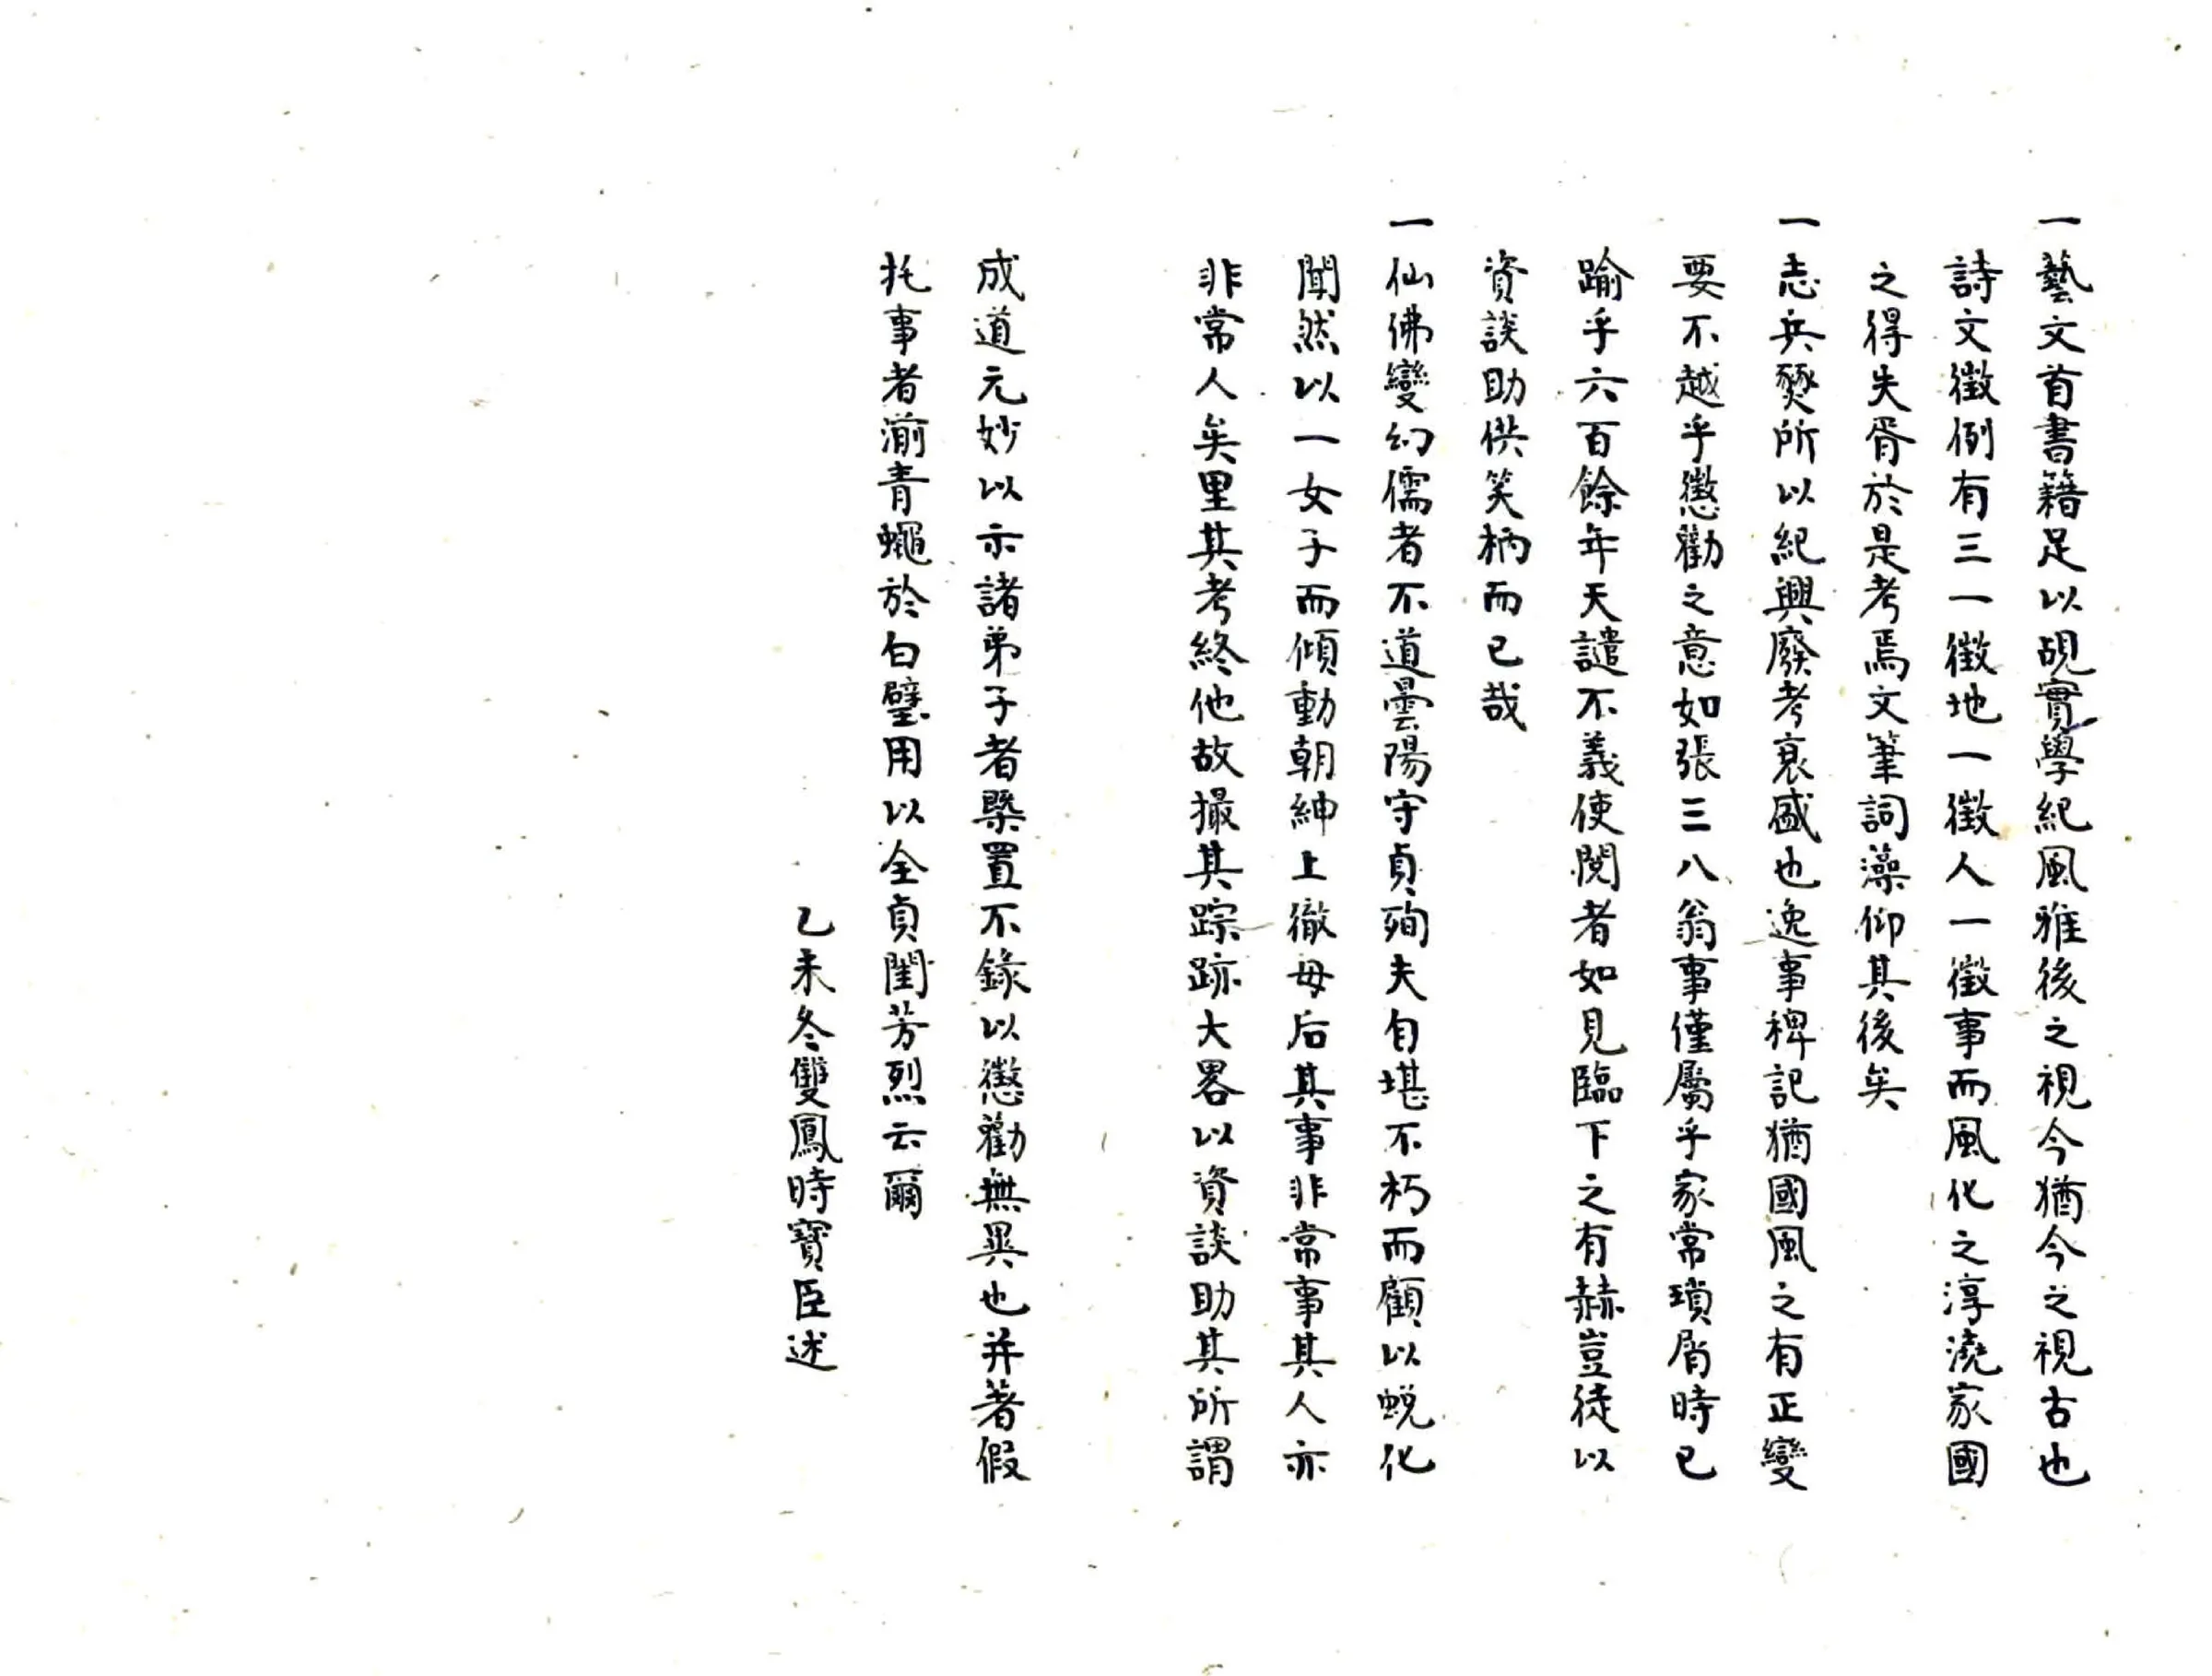 一藝文首書籍足以覘實學紀風雅後之視今猶今之視古也
詩文徵例有三一徵地一徵人一徵事而風化之淳澆家國
之得失胥於是考焉文筆詞藻仰其後矣
一志兵燹所以紀興廢考衰盛也逸事稗記猶國風之有正變
要不越乎懲勸之意如張三八翁事僅屬乎家常瑣屑時已
踰乎六百餘年天譴不義使閱者如見臨下之有赫豈徒以
資談助供笑柄而已哉
一仙佛變幻儒者不道曇陽守貞殉夫自堪不朽而顧以蛻化
聞然以一女子而傾動朝紳上徹母后其事非常事其人亦
非常人矣里其考終他故撮其踪跡大畧以資談助其所謂
成道元妙以示諸弟子者槩置不錄以懲勸無異也并著假
托事者湔青蠅於白璧用以全貞閨芳烈云爾
乙未冬雙鳳時寶臣述